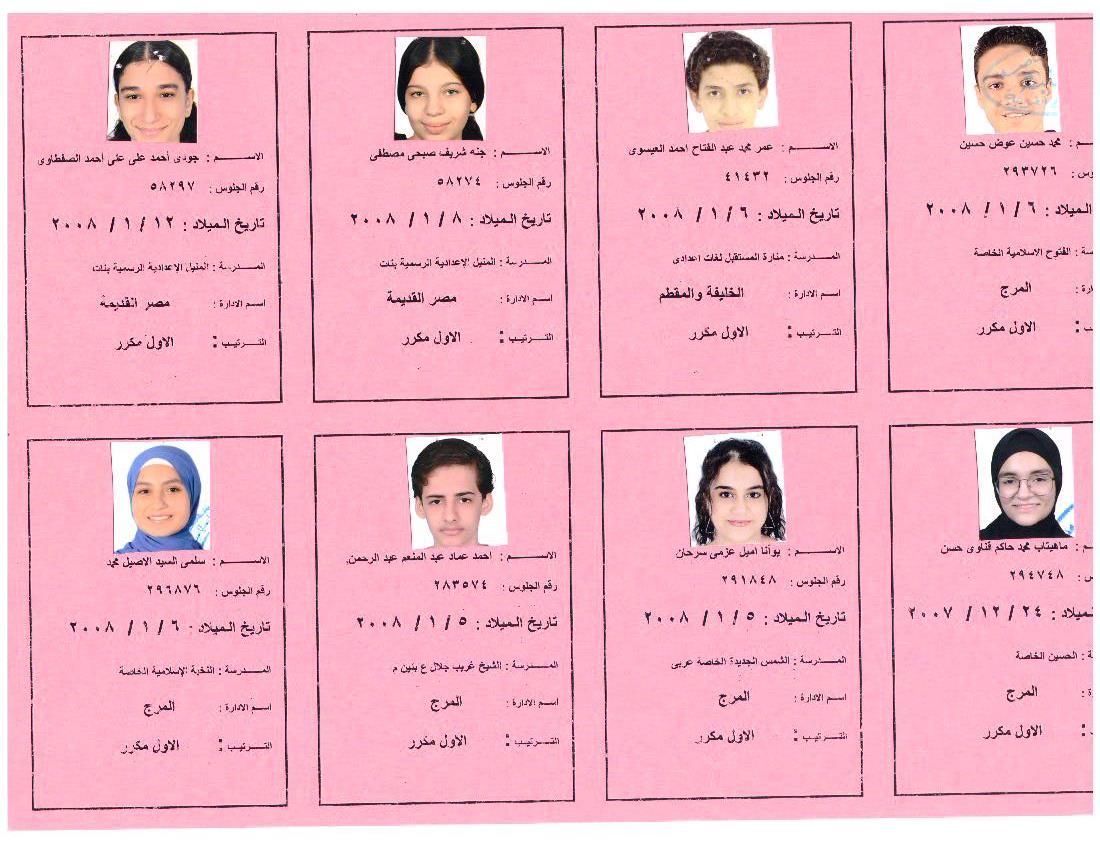 الاســـــم : محمد حسين عوض حسين
٢٩٣٧٢٦
الميلاد : ٦ / ١ / ٢٠٠٨
الفتوح الاسلامية الخاصة
المرج
الاول مكرر
الاســـــم : عمر محمد عبد الفتاح احمد العيسوى
رقم الجلوس : ٤١٤٣٢
تاريخ الميلاد : ٦ / ١ / ٢٠٠٨
المـــدرسة : منارة المستقبل لغات اعدادى
اسم الادارة : الخليفة والمقطم
التـــرتيب : الاول مكرر
الاســـــم : جنه شريف صبحى مصطفى
رقم الجلوس : ٥٨٢٧٤
تاريخ الميلاد : ٨ / ١ / ٢٠٠٨
المـــدرسة : المنيل الإعدادية الرسمية بنات
اسم الادارة : مصر القديمة
التـــرتيب : الاول مكرر
الاســـــم : جودى أحمد على على أحمد الصفطاوى
رقم الجلوس : ٥٨٢٩٧
تاريخ الميلاد : ١٢ / ١ / ٢٠٠٨
المـــدرسة : المنيل الإعدادية الرسمية بنات
اسم الادارة : مصر القديمة
التـــرتيب : الاول مكرر
ماهيتاب محمد حاكم قناوى حسن
٢٩٤٧٤٨
ميلاد : ٢٤ / ١٢ / ٢٠٠٧
الحسين الخاصة
المرج
الاول مكرر
الاســـــم : يوأنا اميل عزمى سرحان
رقم الجلوس : ٢٩١٨٤٨
تاريخ الميلاد : ٥ / ١ / ٢٠٠٨
المـــدرسة : الشمس الجديدة الخاصة عربى
اسم الادارة : المرج
التـــرتيب : الاول مكرر
الاســـــم : احمد عماد عبد المنعم عبد الرحمن
رقم الجلوس : ٢٨٣٥٧٤
تاريخ الميلاد : ٥ / ١ / ٢٠٠٨
المـــدرسة : الشيخ غريب جلال ع بنين م
اسم الادارة : المرج
التـــرتيب : الاول مكرر
الاســـــم : سلمى السيد الاصيل محمد
رقم الجلوس : ٢٩٦٨٧٦
تاريخ الميلاد : ٦ / ١ / ٢٠٠٨
المـــدرسة : النخبة الإسلامية الخاصة
اسم الادارة : المرج
التـــرتيب : الاول مكرر